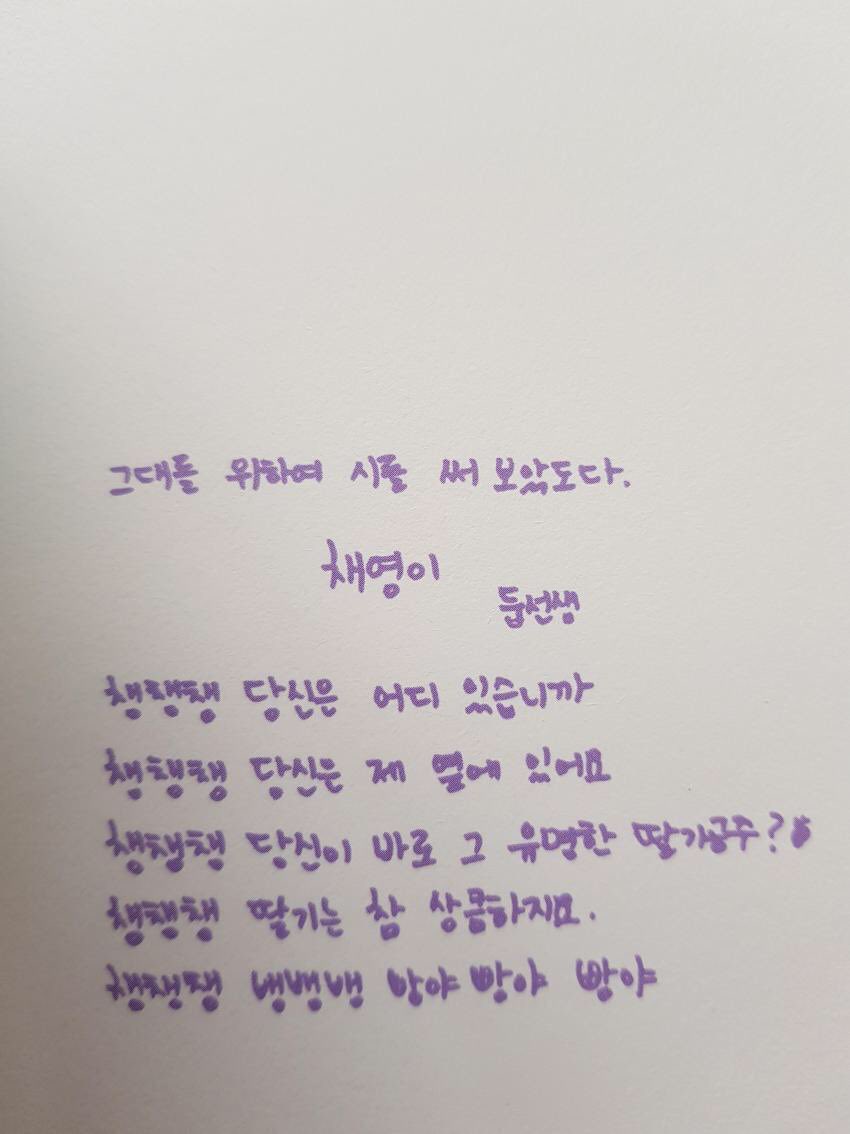 그대들 위하여 시를 써 보았도다.
채영이
둡선생
챙챙챙 당신은 어디 있습니까
챙챙챙 당신은 제 옆에 있어요
챙챙챙 당신이 바로 그 유명한 딸기공주?
챙챙챙 딸기는 참 상콤하지요.
챙챙챙 뱅뱅뱅 빵야 빵야 빵야